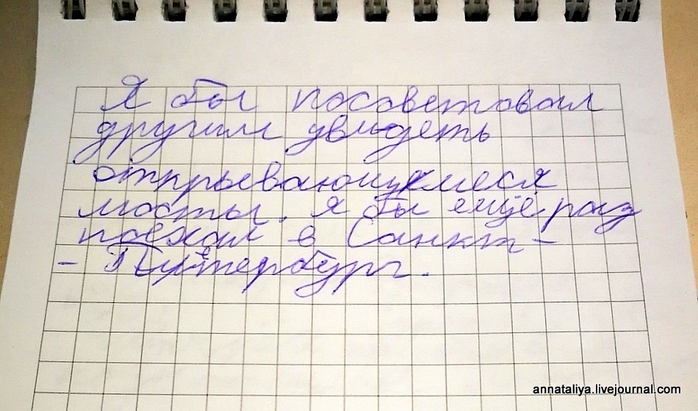 Я бы посоветовал
другим увидеть
открывающиеся
мосты. Я бы ещё раз
поехал в Санкт-
- Питербург.
annataliya.livejournal.com